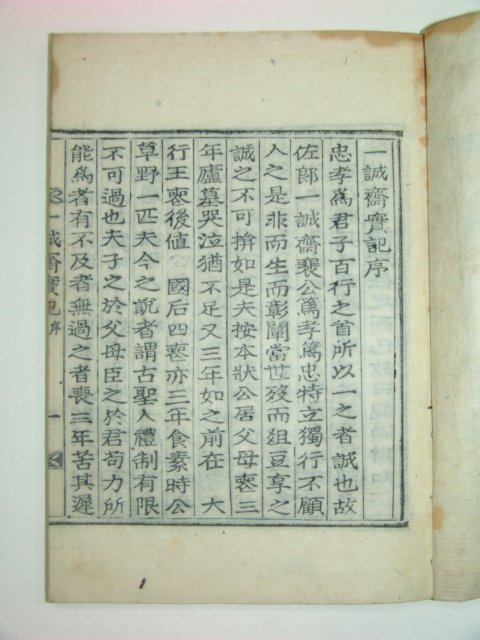 一誠齋實記序
忠孝爲君子百行之首所以一之者誠也故
佐郎一誠齋裵公篤孝篤忠特立獨行不顧
人之是非而生而彰闡當世歿而俎豆享之
誠之不可揜如是夫按本狀公居父母喪三
年廬墓哭泣猶不足又三年如之前在　大
行王喪後値　國后四喪亦三年食素時公
草野一匹夫今之說者謂古聖人禮制有限
不可過也夫子之於父母臣之於君苟力所
能爲者有不及者無過之者喪三年苦其遲
一誠齋實記　序　一